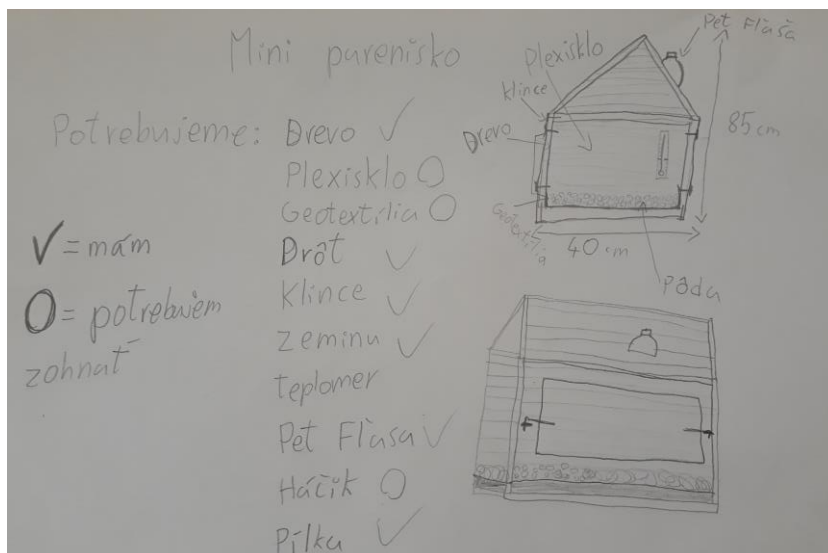 Mini parenisko
Potrebujeme: Drevo ✓
Plexisklo O
Geotextília O
Drôt ✓
Klince ✓
zeminu ✓
teplomer
Pet Fľaša ✓
Háčik O
Pílka ✓
✓ = mám
O = potrebujem
zohnať
Pet Fľaša
Plexisklo
Klince
Drevo
85 cm
Geotextília
40 cm
Pôda